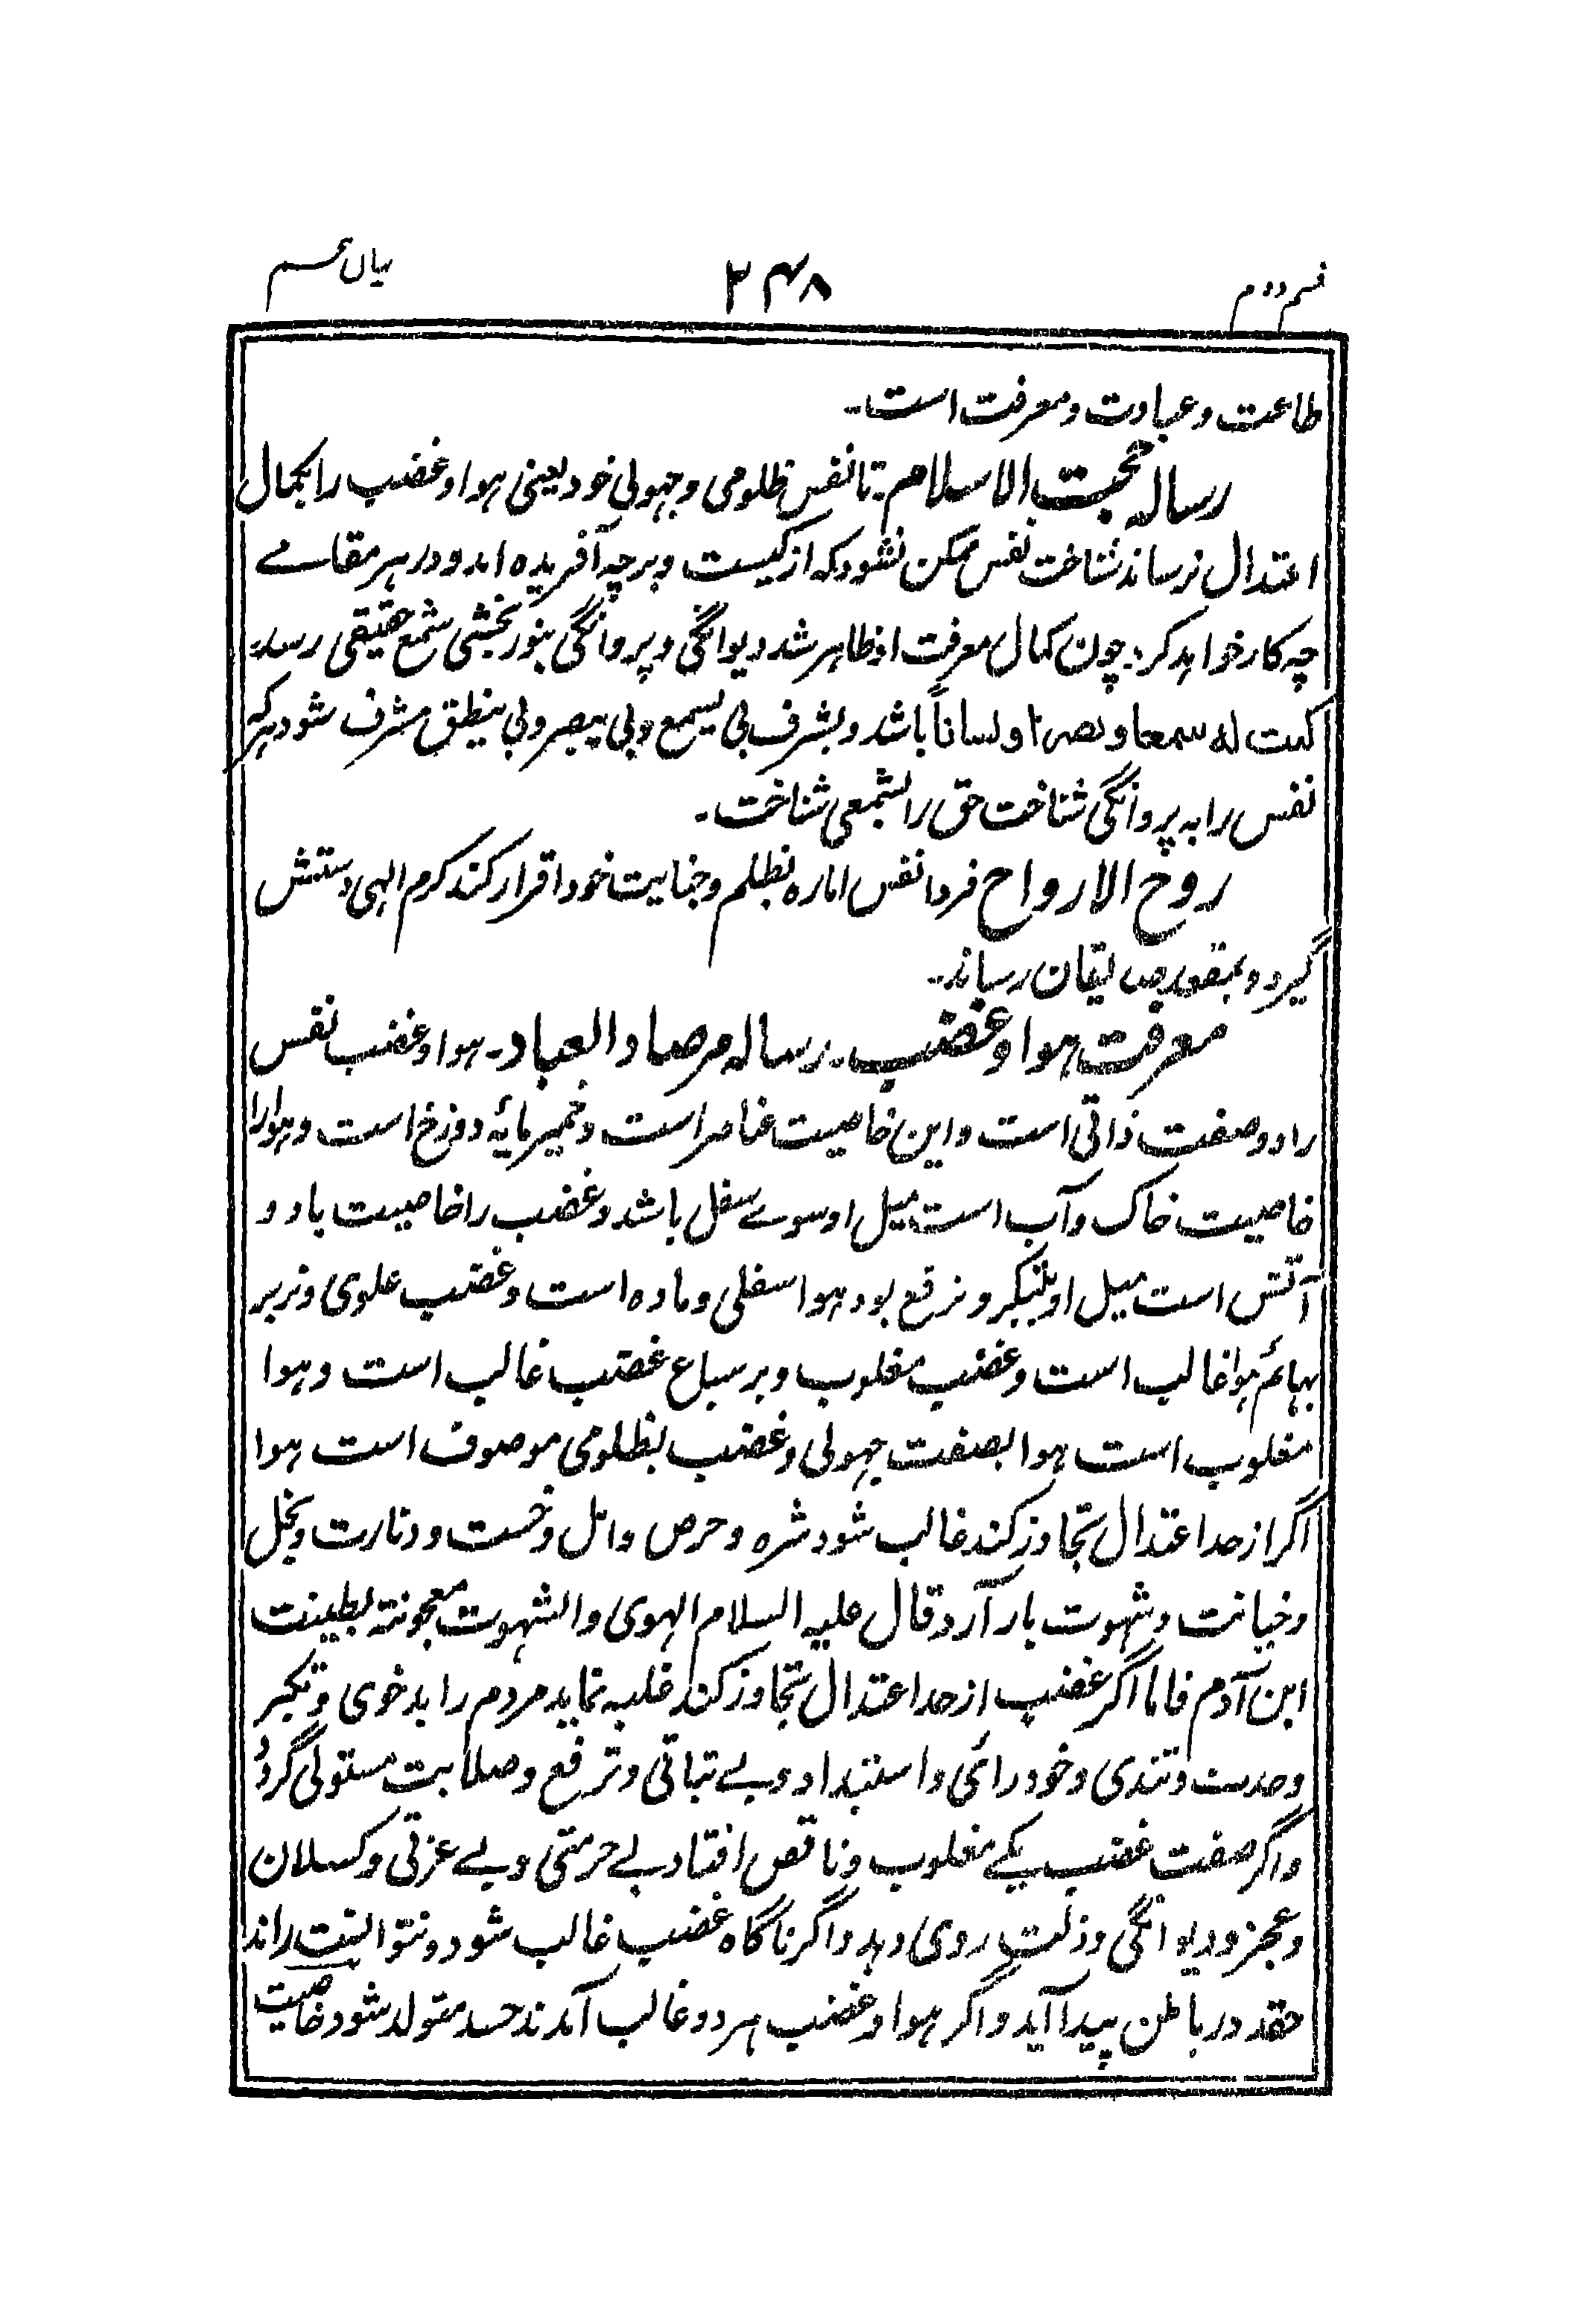 قسم دوم ۲۴۸ بیان
طاعت و عبادت و معرفت است۔
رسالہ حجت الاسلام۔ تا نفس ظلومی و جہولی خود یعنی ہوا و غضب را بکمال
اعتدال نرساند شناخت نفس ممکن نشود کہ از کیست و بر چہ آفریدہ اند و در ہر مقامے
چہ کار خواہد کرد چون کمال معرفت او ظاہر شد دیوانگی و پروانگی بنور بخشی شمع حقیقی رسد
کنت لہ سمعا و بصرا و لساناً باشد و بشرف بی یسمع و بی یبصر و بی ینطق مشرف شود ہر کہ
نفس را بہ پروانگی شناخت حق را بشمعی شناخت۔
روح الارواح فردا نفس امارہ بظلم و جنایت خود اقرار کند کرم الہی دستش
گیرد و بمقصد رساند۔
معرفت ہوا و غضب۔ رسالہ مرصاد العباد۔ ہوا و غضب نفس
را دو صفت ذاتی است و این خاصیت عناصر است و خمیر مایۂ دوزخ است و ہوا را
خاصیت خاک و آب است میل او سوے سفل باشد و غضب را خاصیت باد و
آتش است میل او بتکبر و ترفع بود ہوا سفلی و مادہ است و غضب علوی و نر بر
بہائم ہوا غالب است و غضب مغلوب و بر سباع غضب غالب است و ہوا
مغلوب است ہوا بصفت جہولی و غضب بظلومی موصوف است ہوا
اگر از حد اعتدال تجاوز کند غالب شود شرہ و حرص و امل و خست و دنارت و بخل
و خیانت و شہوت بار آرد قال علیہ السلام الہوی و الشہوت معجونتہ بطینت
ابن آدم فاما اگر غضب از حد اعتدال تجاوز کند غلبہ نماید مردم را بد خوی و تکبر
و حدت و تندی و خود رائی و استبداد و بے ثباتی و ترفع و صلابت مستولی گردد
و اگر صفت غضب یکے مغلوب و ناقص افتاد بے حرمتی و بے عزتی و کسلان
و عجز و دیوانگی و ذلت روی دہد و اگر ناگاہ غضب غالب شود و نتوانست راند
حقد در باطن پیدا آید و اگر ہوا و غضب ہر دو غالب آمدند حسد متولد شود خاصیت